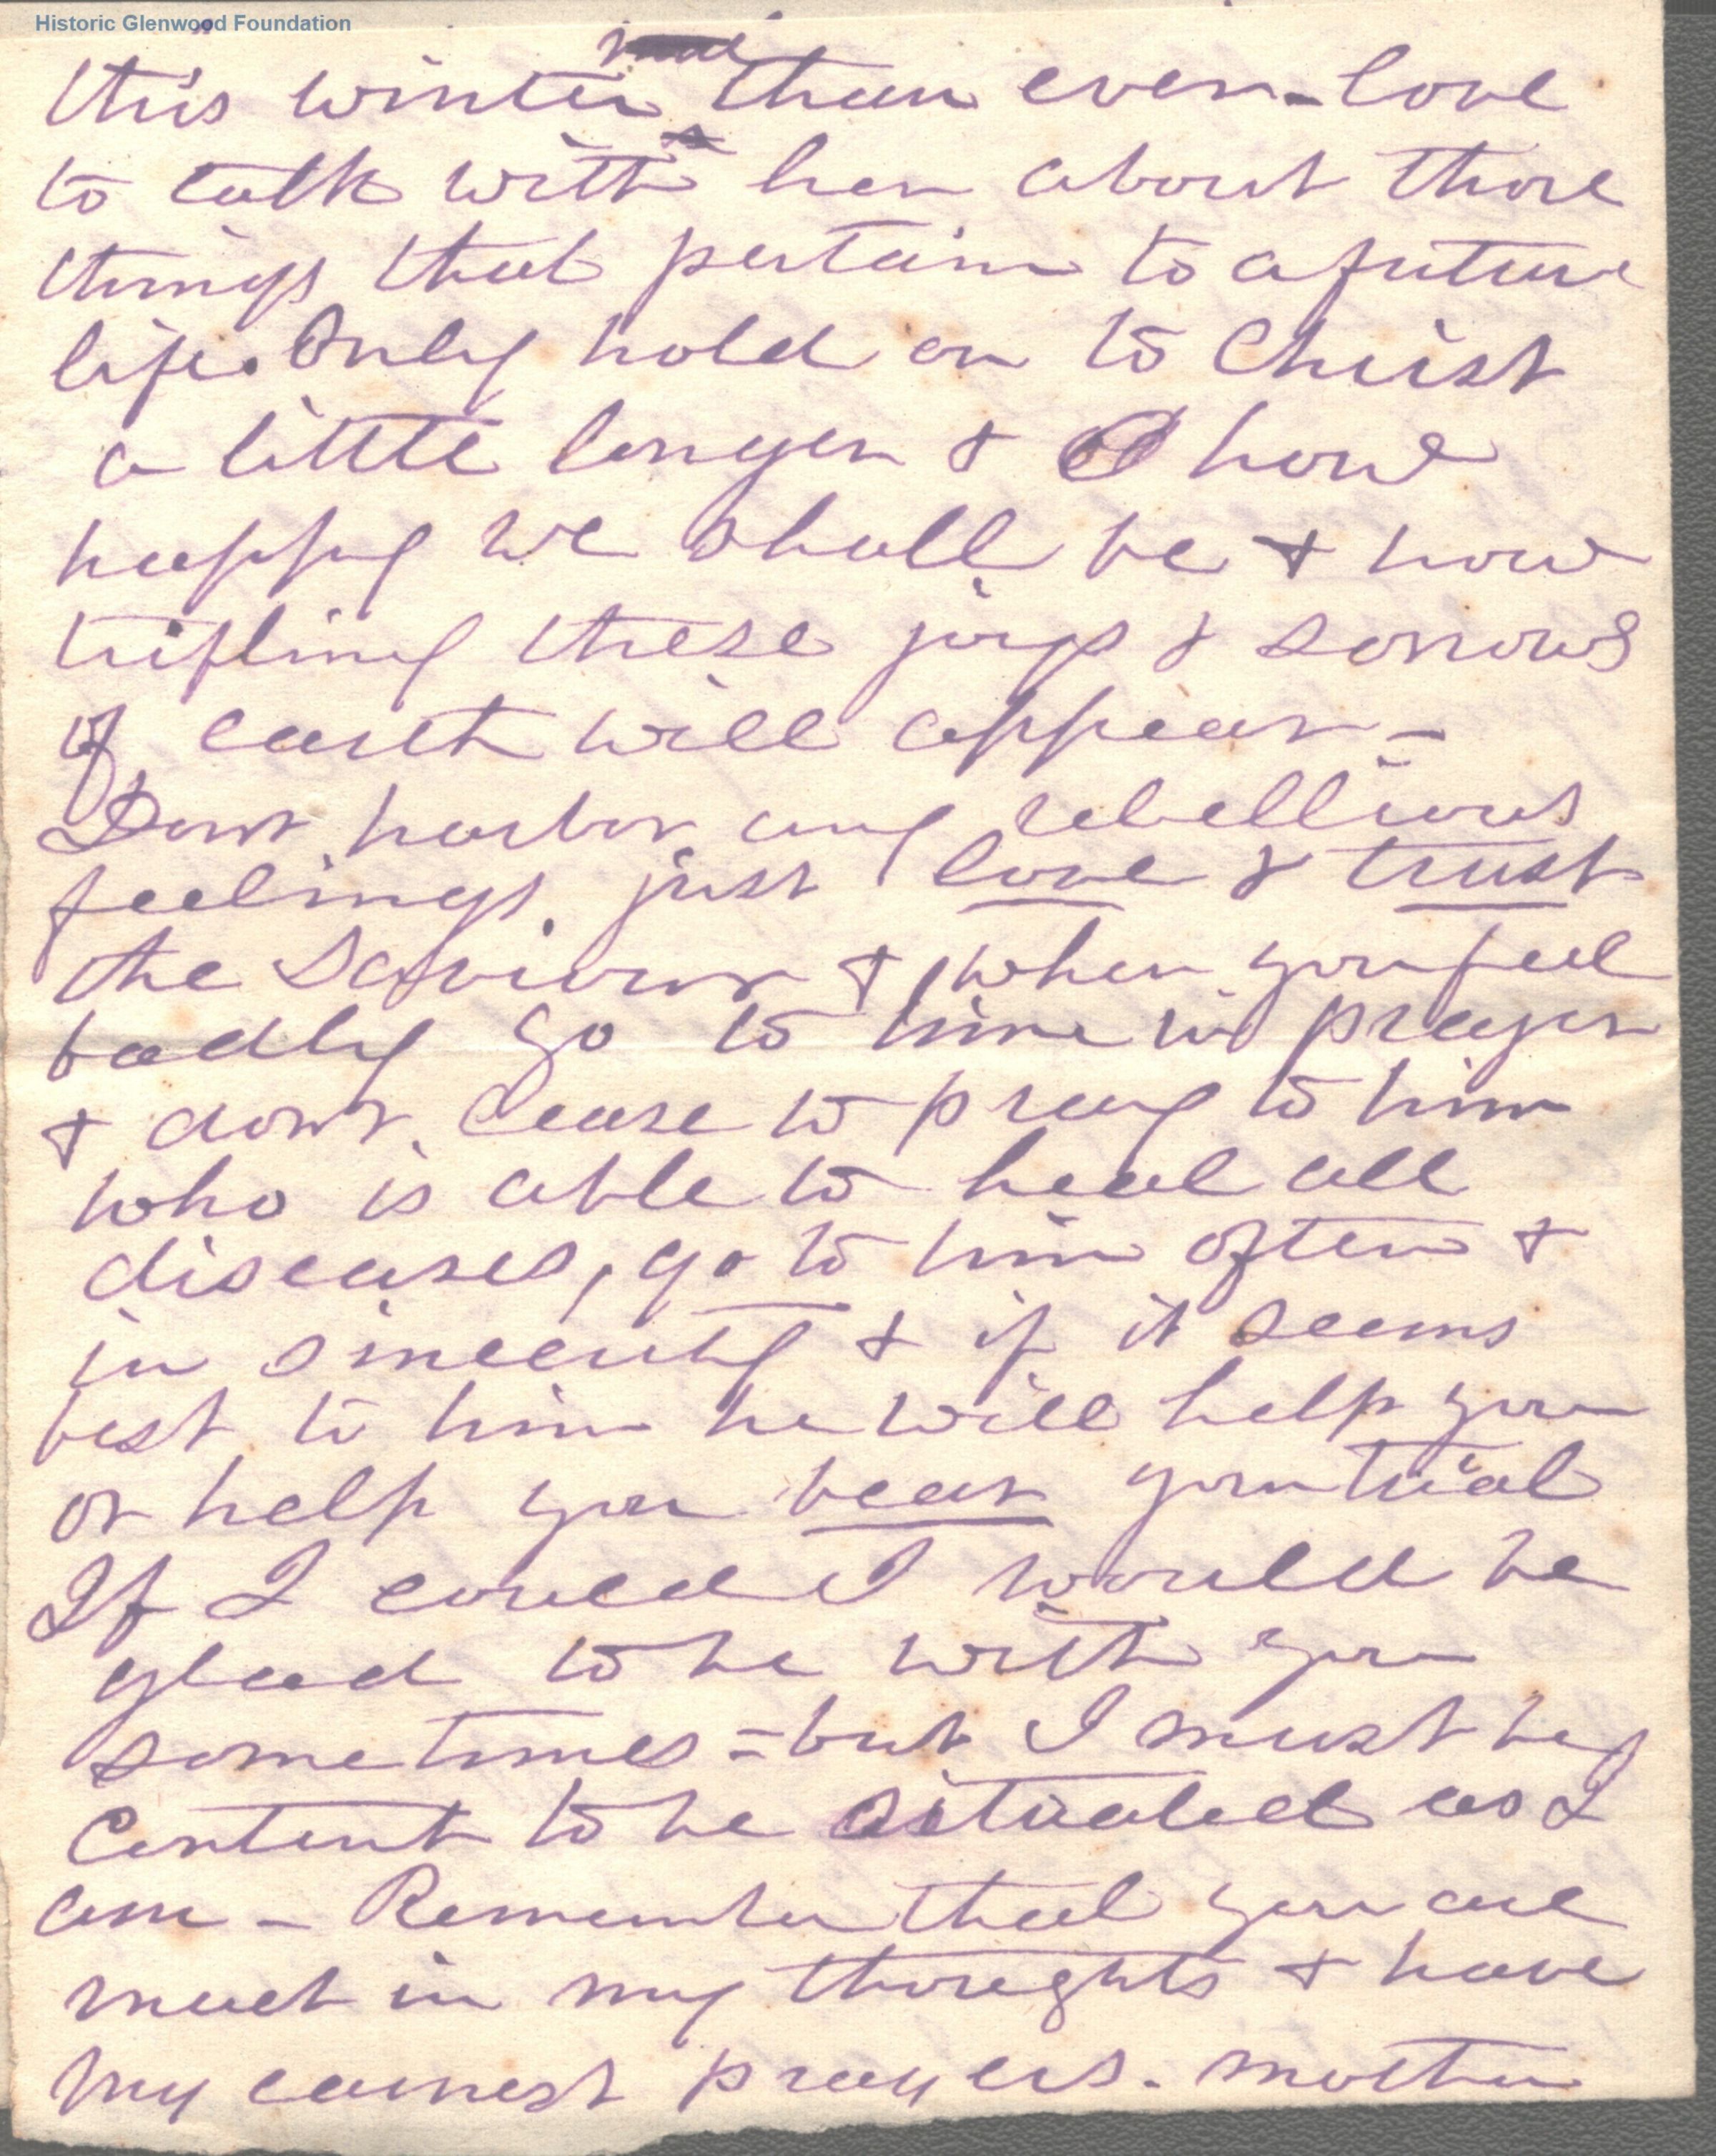 Historic Glenwood Foundation
this winter than ever - love
to talk with her about those
things that pertain to a future
life. Only hold on to Christ
a little longer & O how
happy we shall be & how
trifling these joys & sorrows
of earth will appear -
Dont harbor any rebellious
feelings, just love & trust
the Saviour & when you feel
badly go to him in prayer
& dont cease to pray to him
who is able to heal all
diseases, go to him often &
in sincerity & if it seems
best to him he will help you
or help you bear your trial
If I could I would be
glad to be with you
sometimes = but I must be
content to be situated as I
am - Remember that you are
much in my thoughts & have
my earnest prayers. Mother